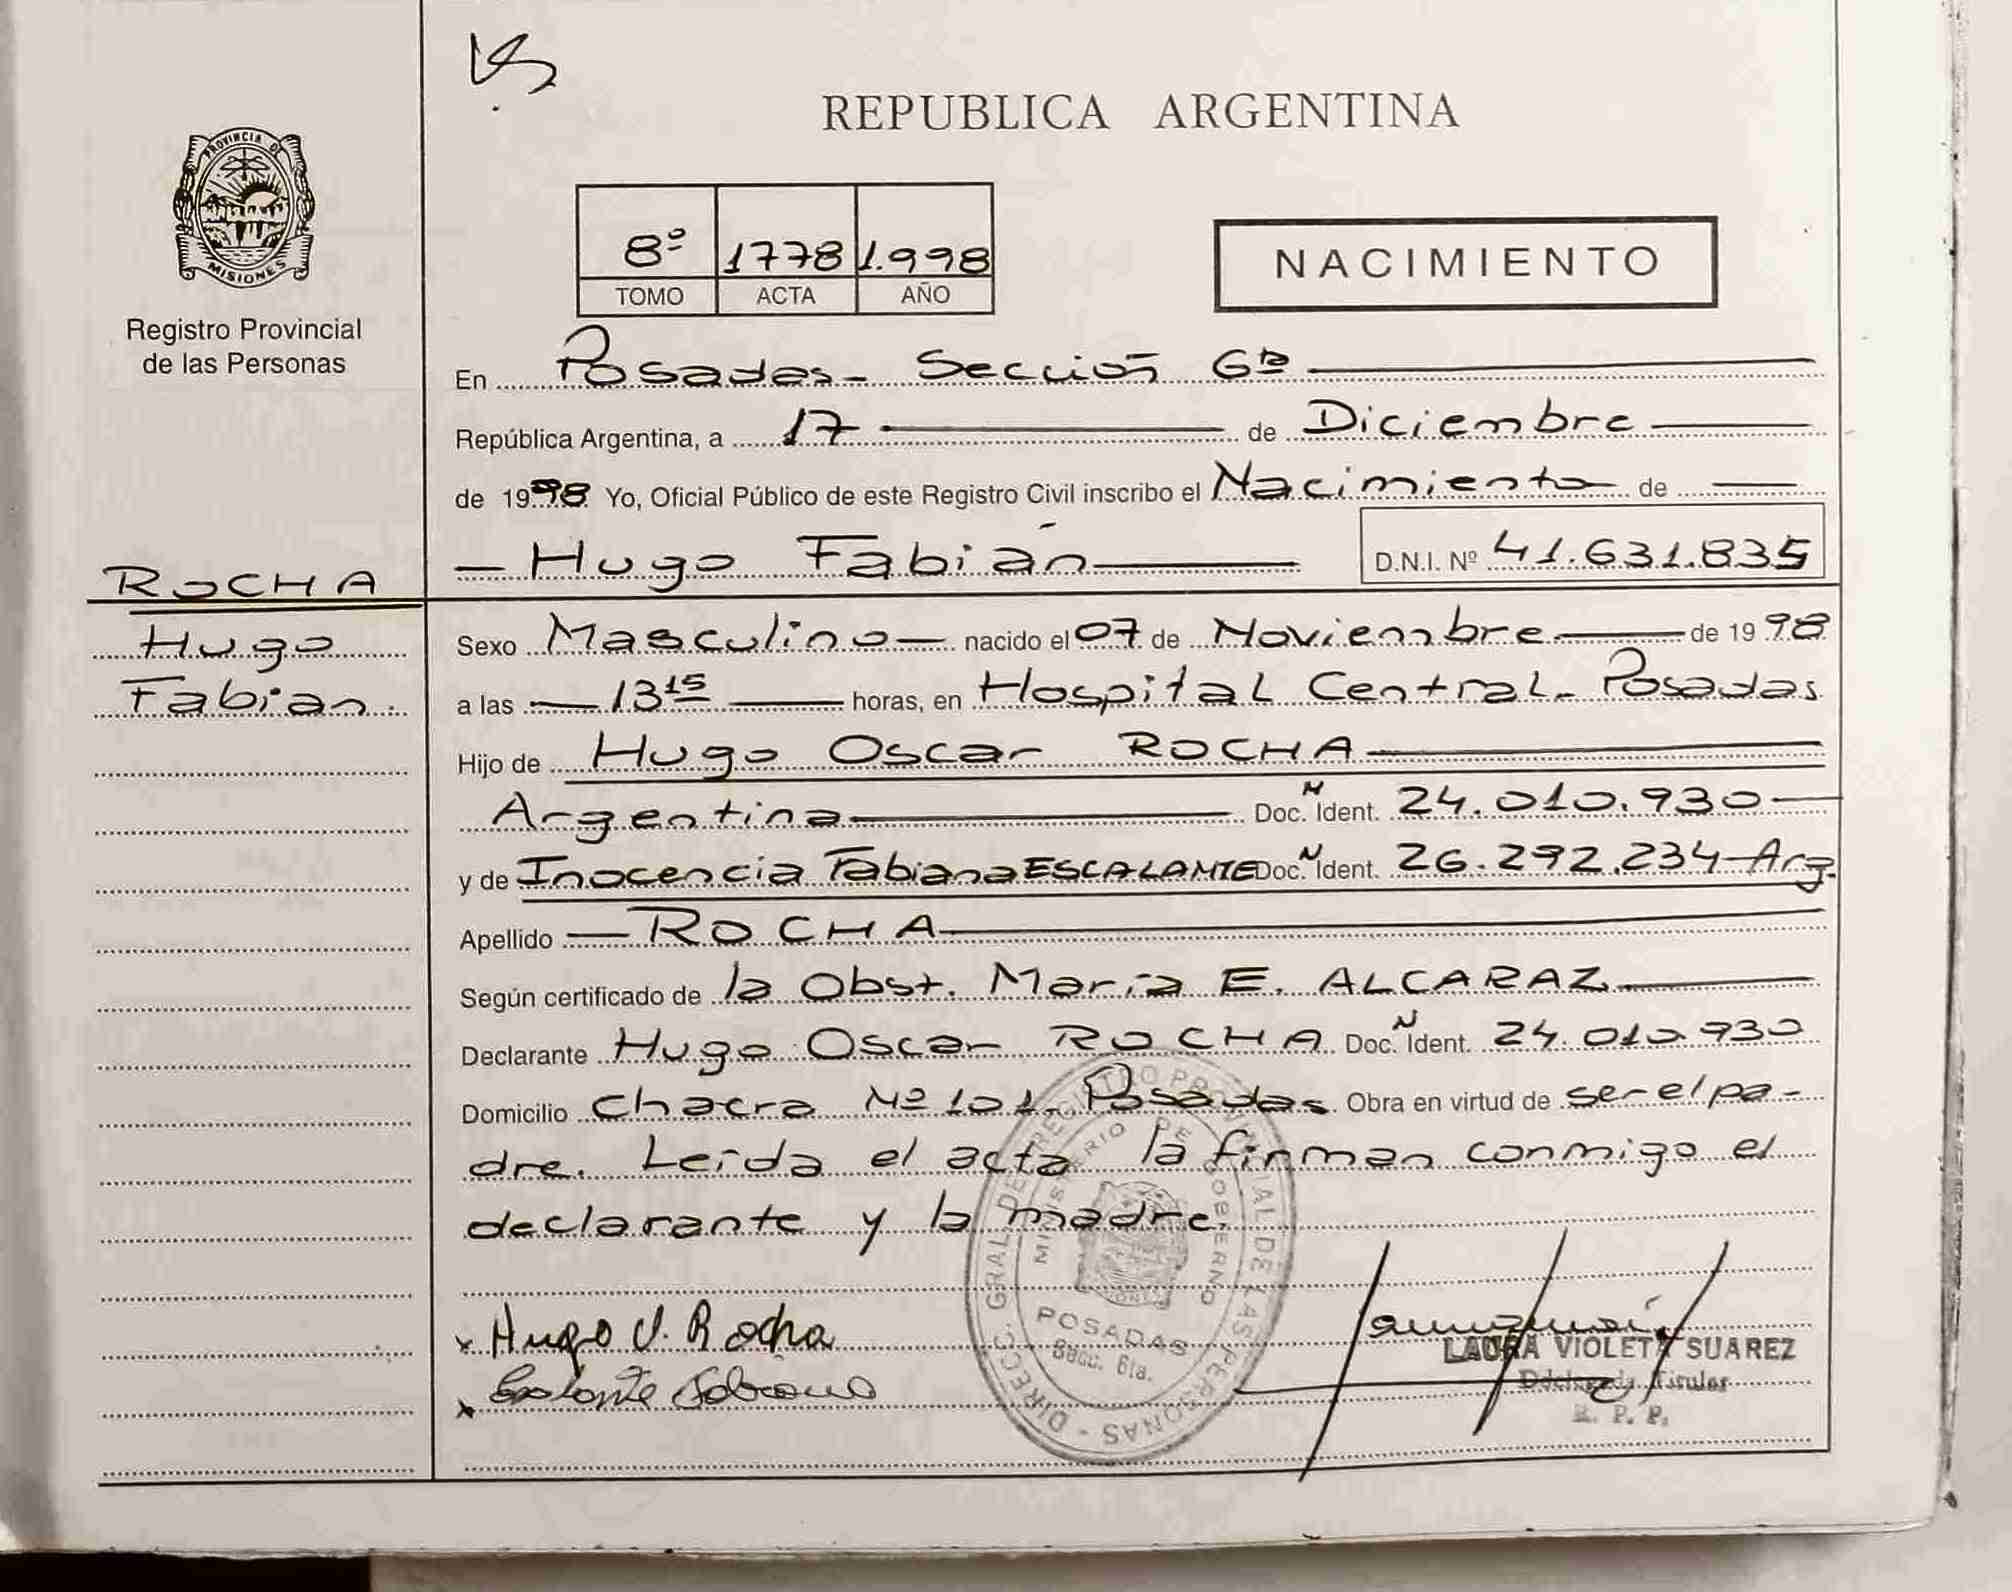 REPUBLICA ARGENTINA
PROVINCIA DE MISIONES
Registro Provincial
de las Personas
8º 1778 1.998
TOMO ACTA AÑO
NACIMIENTO
En Posadas - Sección 6ta
República Argentina, a 17 de Diciembre
de 1998 Yo, Oficial Público de este Registro Civil inscribo el Nacimiento de
Hugo Fabián D.N.I. Nº 41.631.835
ROCHA
Hugo
Fabian.
Sexo Masculino nacido el 07 de Noviembre de 1998
a las 13 15 horas, en Hospital Central - Posadas
Hijo de Hugo Oscar ROCHA
Argentina Doc. N Ident. 24.010.930
y de Inocencia Fabiana ESCALANTE Doc. N Ident. 26.292.234 - Arg.
Apellido ROCHA
Según certificado de la Obst. María E. ALCARAZ
Declarante Hugo Oscar ROCHA Doc. N Ident. 24.010.930
Domicilio Chacra Nº 101 - Posadas Obra en virtud de ser el pa-
dre. Leída el acta la firman conmigo el
declarante y la madre.
DIRECC. GRAL. DE REGISTRO PROVINCIAL DE LAS PERSONAS
MINISTERIO DE GOBIERNO
POSADAS
Secc. 6ta.
x Hugo O. Rocha
x Escalante Fabiana
LAURA VIOLETA SUAREZ
Delegada Titular
R. P. P.